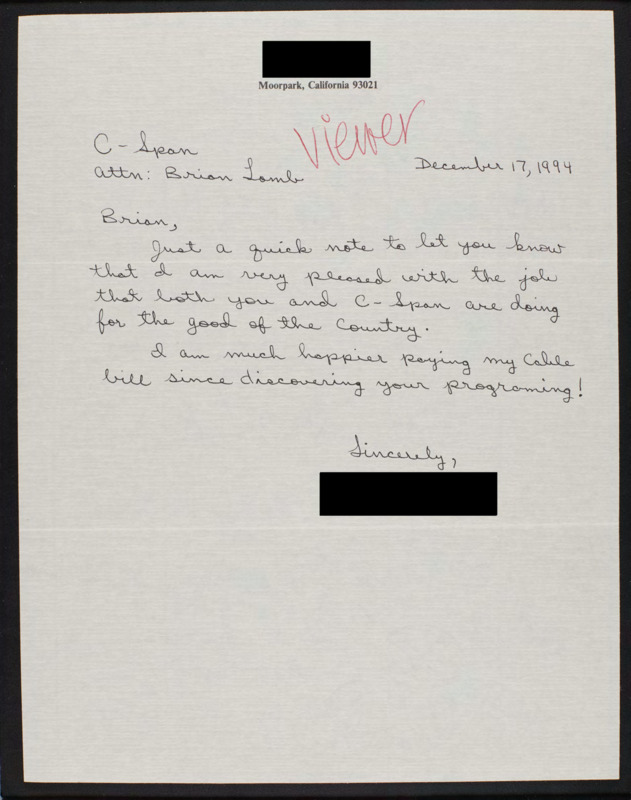 Moorpark, California 93021
viewer
C-Span
December 17, 1994
Attn: Brian Lamb
Brian,
Just a quick note to let you know
that I am very pleased with the job
that both you and C-Span are doing
for the good of the Country.
I am much happier paying my Cable
bill since discovering your programing!
Sincerely,